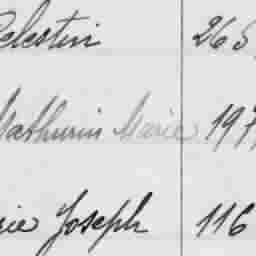 Celestin 265
Mathurin Marie 197
rie Joseph 116